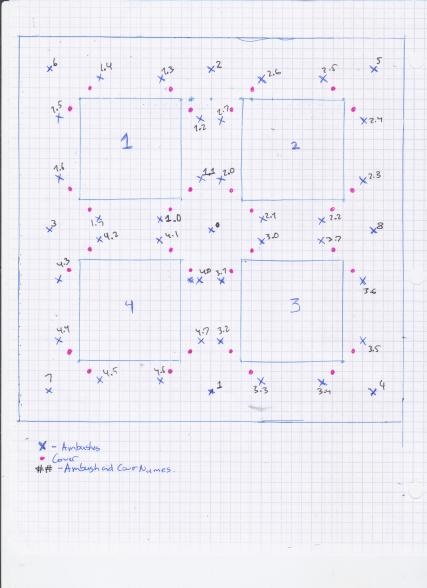 6 1.4 1.3 2 2.6 2.5 5
1.5 1.2 2.7 2.4
1 2
1.6 1.1 2.0 2.3
3 1.0 0 2.1 2.2 8
4.2 4.1 3.0 3.7
4.3 4.0 3.6
4 3
4.4 4.7 3.2 3.5
7 4.5 4.6 1 3.3 3.4 4
X - Ambushes
Cover
## - Ambush and Cover Names.